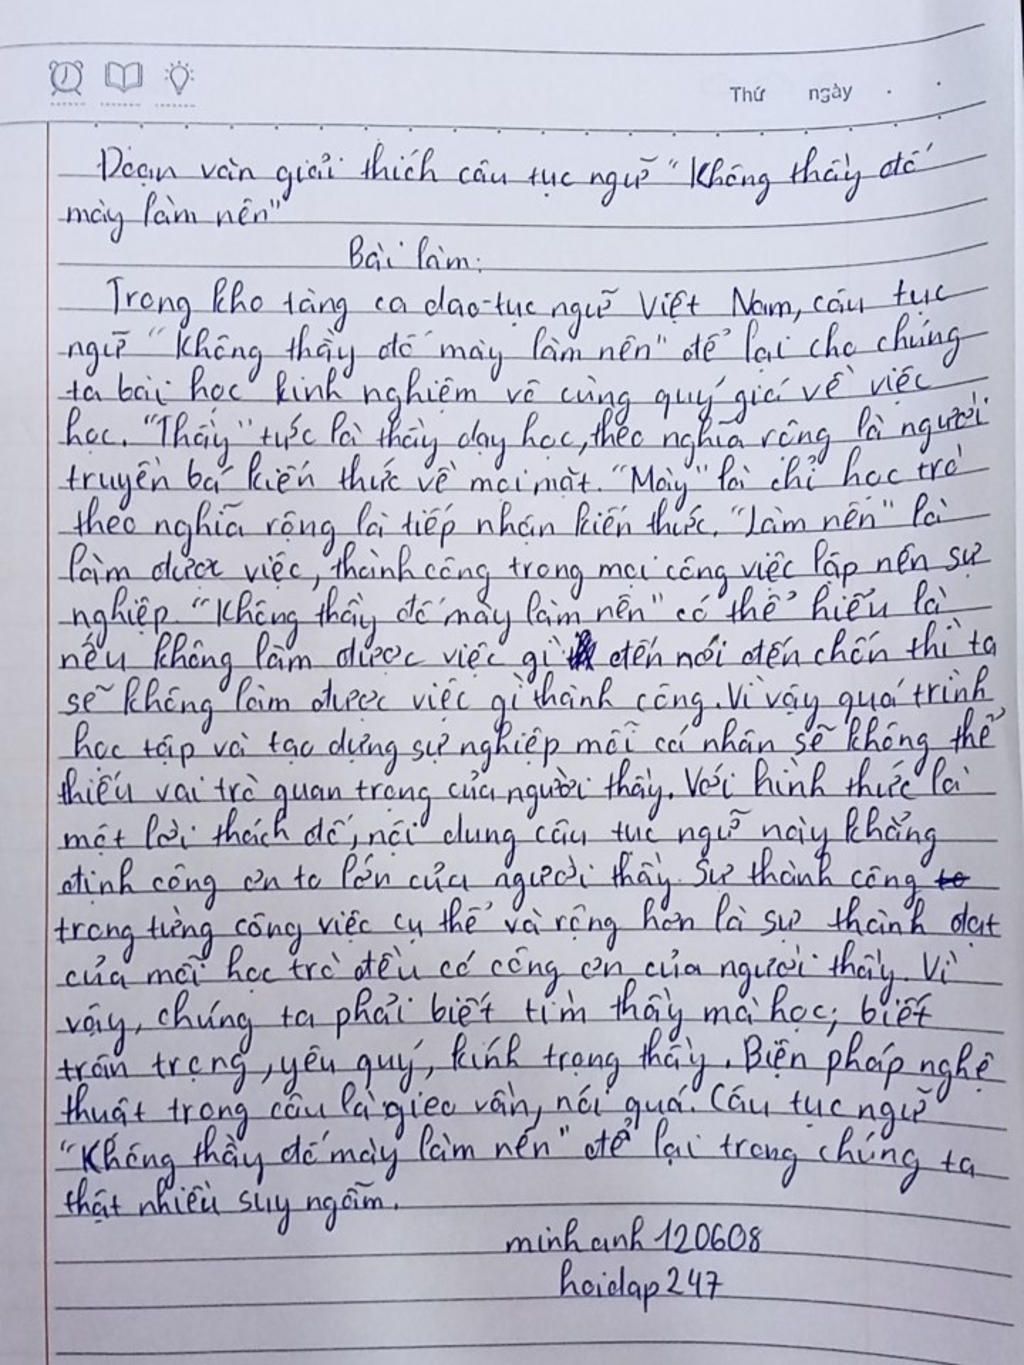 Thứ ngày
Đoạn văn giải thích câu tục ngữ "Không thầy đố
mày làm nên"
Bài làm:
Trong kho tàng ca dao-tục ngữ Việt Nam, câu tục
ngữ "Không thầy đố mày làm nên" để lại cho chúng
ta bài học kinh nghiệm vô cùng quý giá về việc
học. "Thầy" tức là thầy dạy học, theo nghĩa rộng là người
truyền bá kiến thức về mọi mặt. "Mày" là chỉ học trò
theo nghĩa rộng là tiếp nhận kiến thức. "Làm nên" là
làm được việc, thành công trong mọi công việc lập nên sự
nghiệp. "Không thầy đố mày làm nên" có thể hiểu là
nếu không làm được việc gì đến nơi đến chốn thì ta
sẽ không làm được việc gì thành công. Vì vậy quá trình
học tập và tạo dựng sự nghiệp mỗi cá nhân sẽ không thể
thiếu vai trò quan trọng của người thầy. Với hình thức là
một lời thách đố, nội dung câu tục ngữ này khẳng
định công ơn to lớn của người thầy. Sự thành công
trong từng công việc cụ thể và rộng hơn là sự thành đạt
của mỗi học trò đều có công ơn của người thầy. Vì
vậy, chúng ta phải biết tìm thầy mà học; biết
trân trọng, yêu quý, kính trọng thầy. Biện pháp nghệ
thuật trong câu là gieo vần, nói quá. Câu tục ngữ
"Không thầy đố mày làm nên" để lại trong chúng ta
thật nhiều suy ngẫm.
minhanh120608
hoidap247